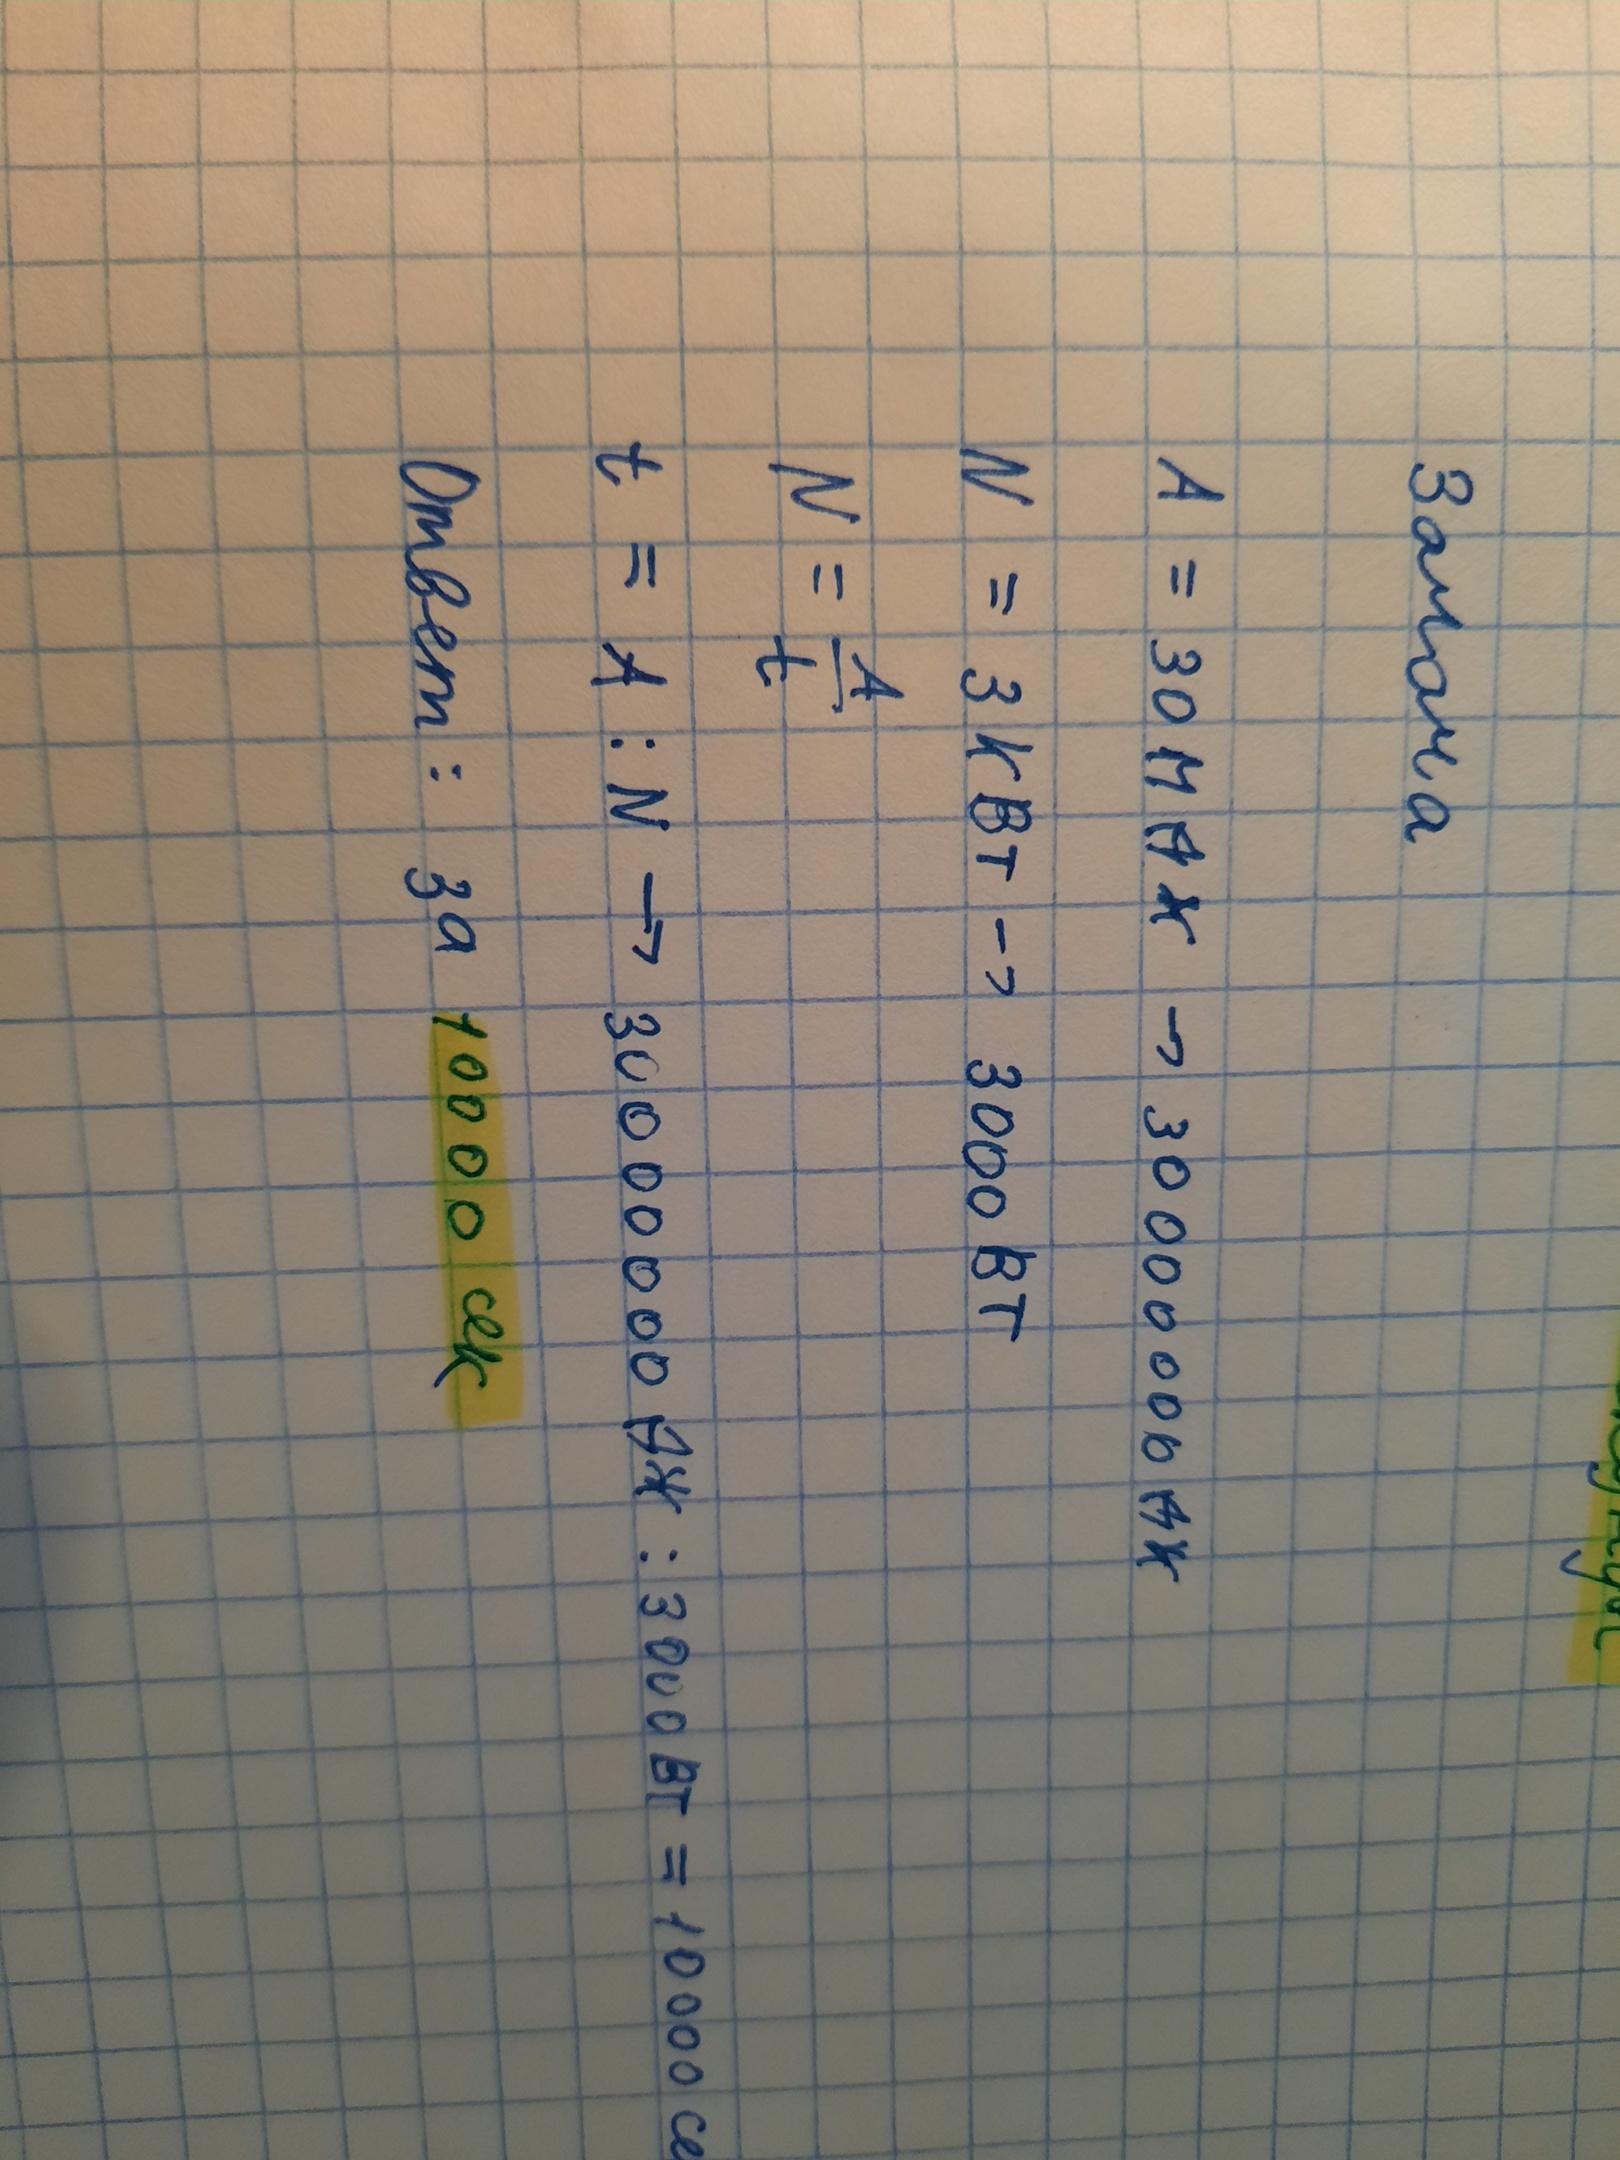 Задача
A = 30 МДЖ → 30000000 ДЖ
N = 3 кВт → 3000 Вт
N = A/t
t = A : N → 30000000 ДЖ : 3000 Вт = 10000 се
Ответ: за 10000 сек